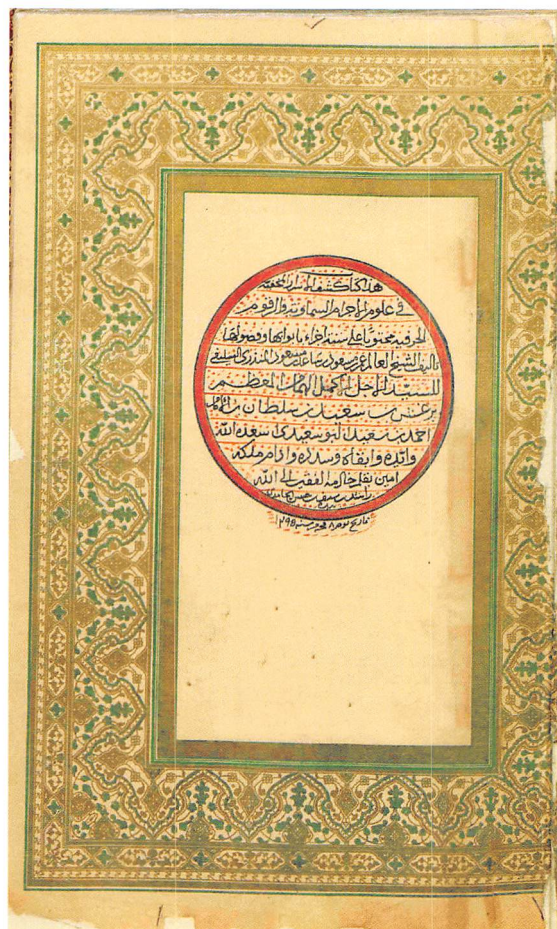 هذا كتاب كشف الاسرار المخفية
في علوم الاجرام السماوية والرقوم
الحرفية محتويًا على ستة اجزاء بأبوابها وفصولها
تاليف الشيخ العالم عمر بن مسعود بن ساعد المنذري السليفي
للسيد الاجل الاكمل الهمام المعظم
برغش بن سعيد بن سلطان بن الامام
احمد بن سعيد البوسعيدي اسعده الله
وايده وابقاه وسدده وادام ملكه
امين بقلم خادمه الفقير الى الله
راشد بن سيف بن
تاريخ يوم ٨ محرم سنة ١٢٩٥